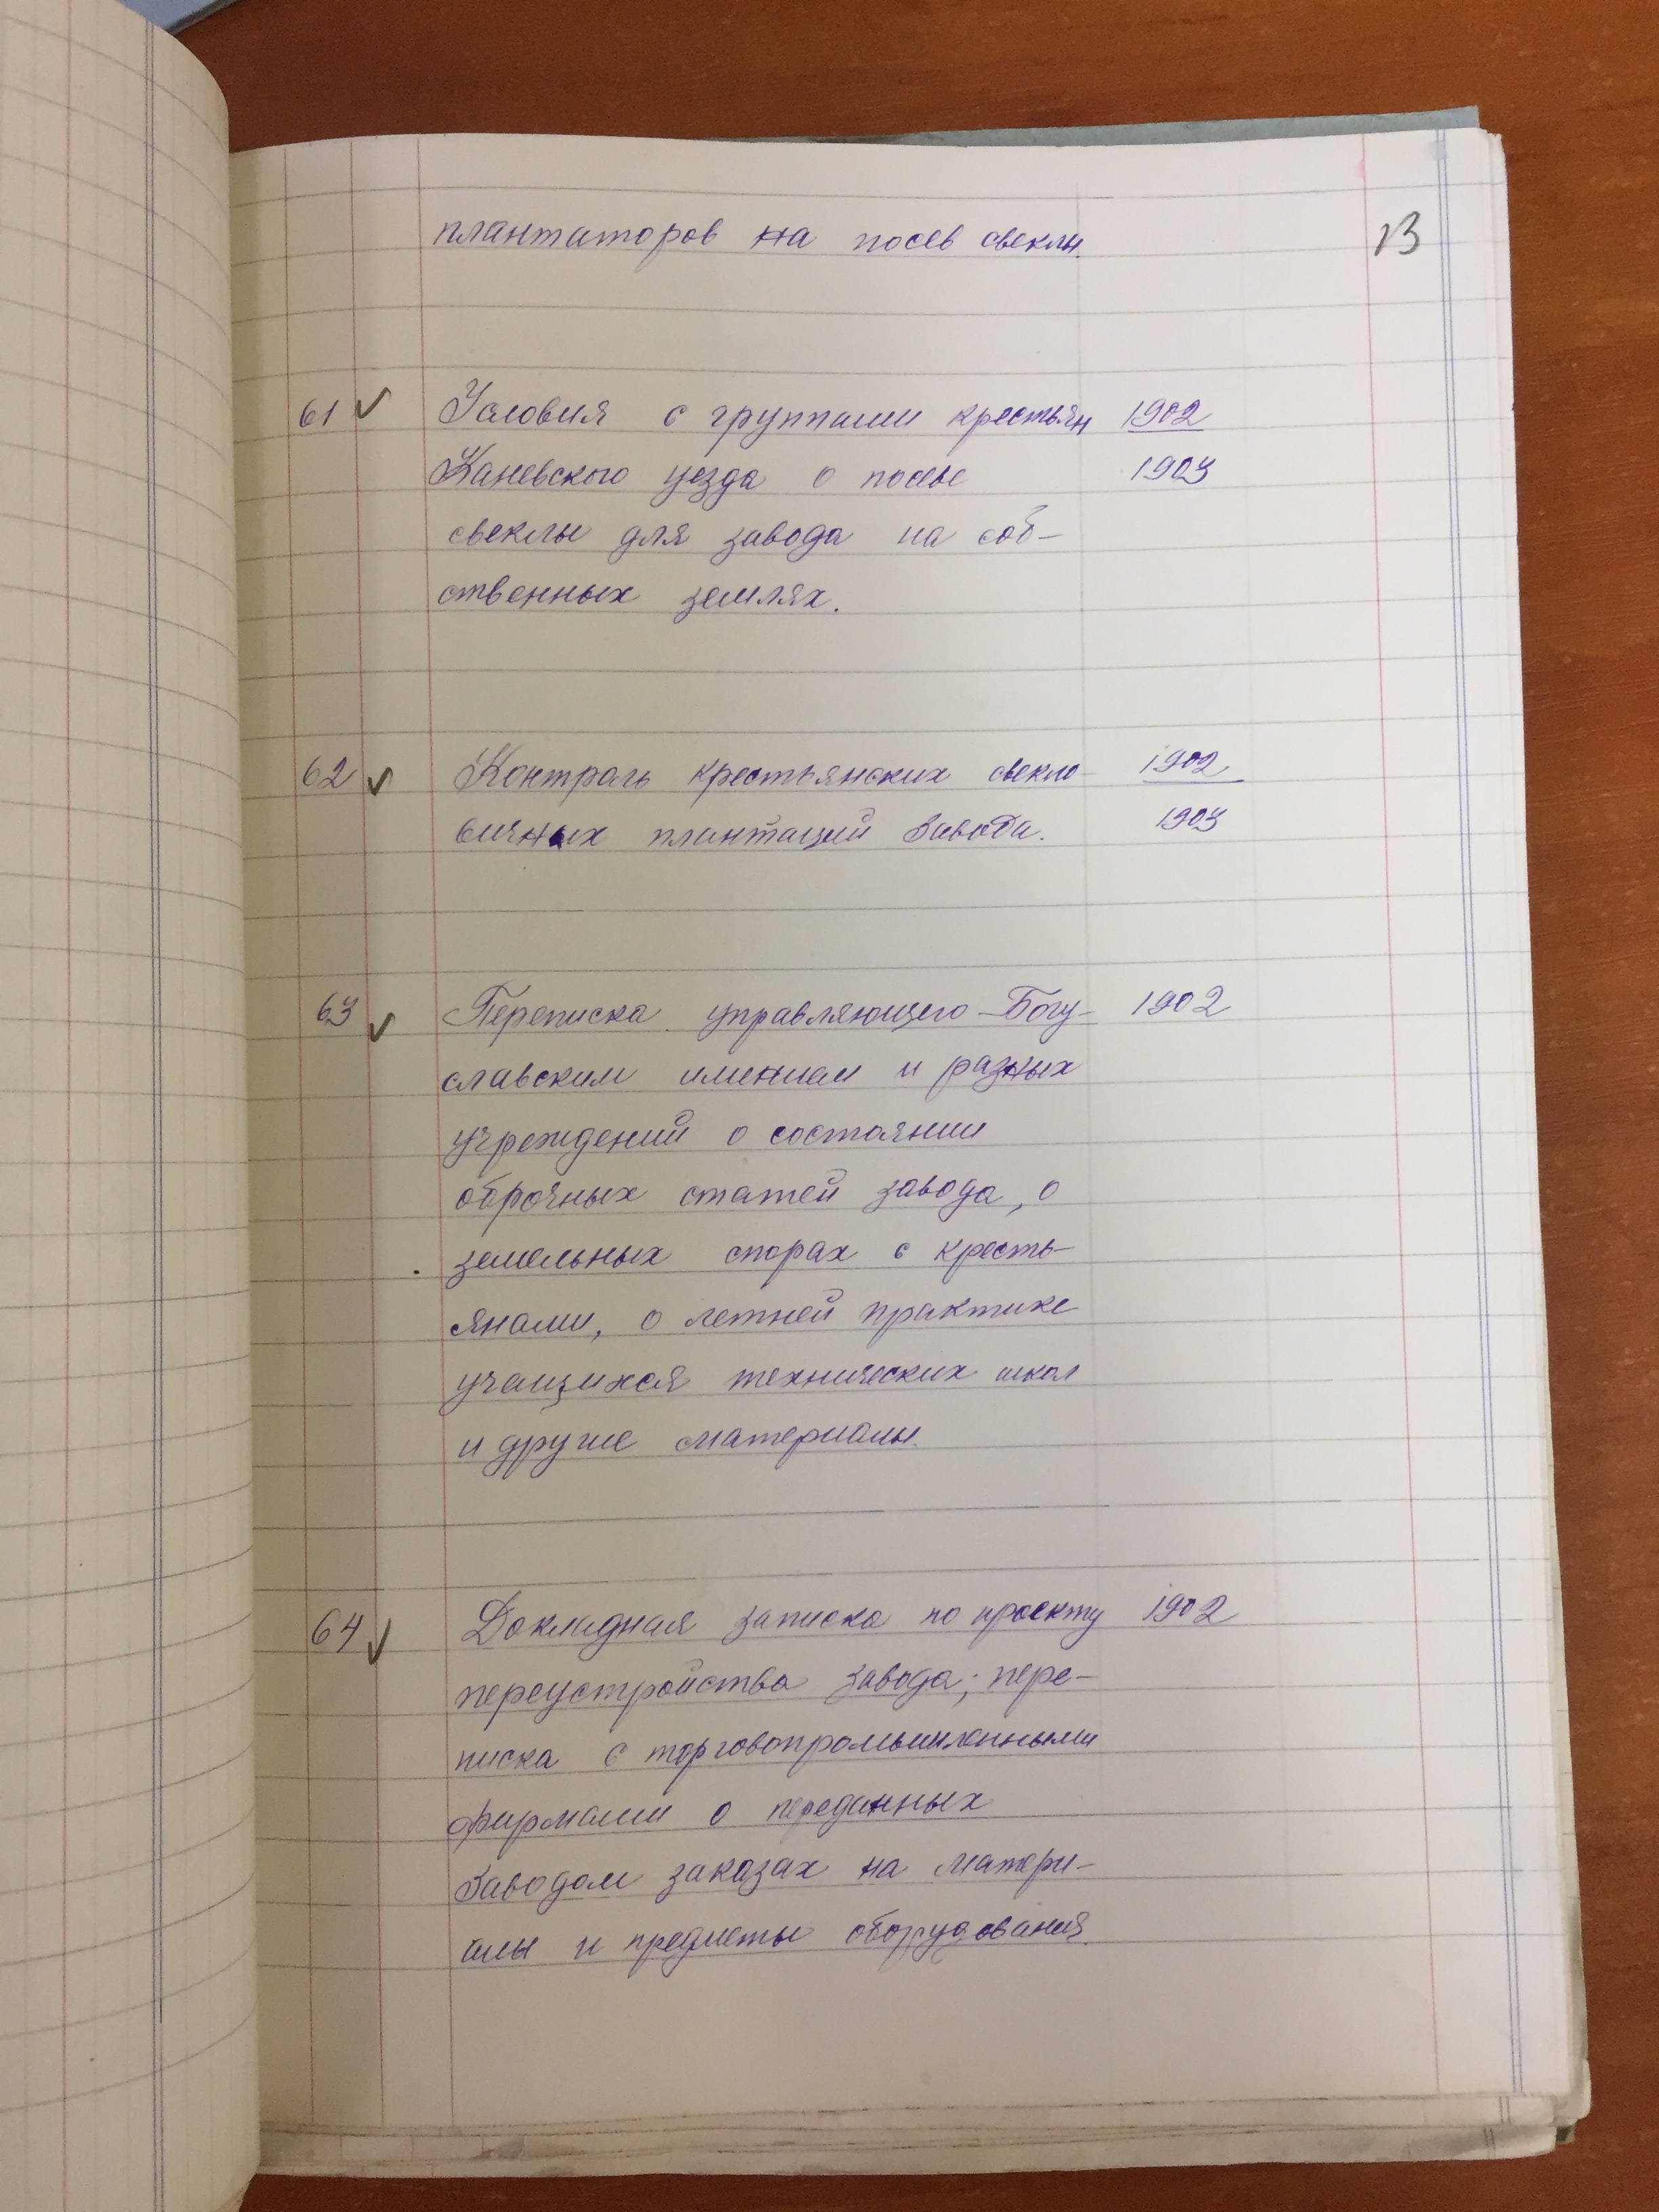 плантаторов на посев свеклы.
13
61 ✓ Условия с группами крестьян 1902
Каневского уезда о посеве 1903
свеклы для завода на соб-
ственных землях.
62 ✓ Контроль крестьянских свекло- 1902
вичных плантаций завода. 1903
63 ✓ Переписка управляющего Богу- 1902
славским имением и разных
учреждений о состоянии
оброчных статей завода, о
земельных спорах с кресть-
янами, о летней практике
учащихся технических школ
и другие материалы.
64 ✓ Докладная записка по проекту 1902
переустройства завода; пере-
писка с торговопромышленными
фирмами о переданных
заводом заказах на матери-
алы и предметы оборудования.